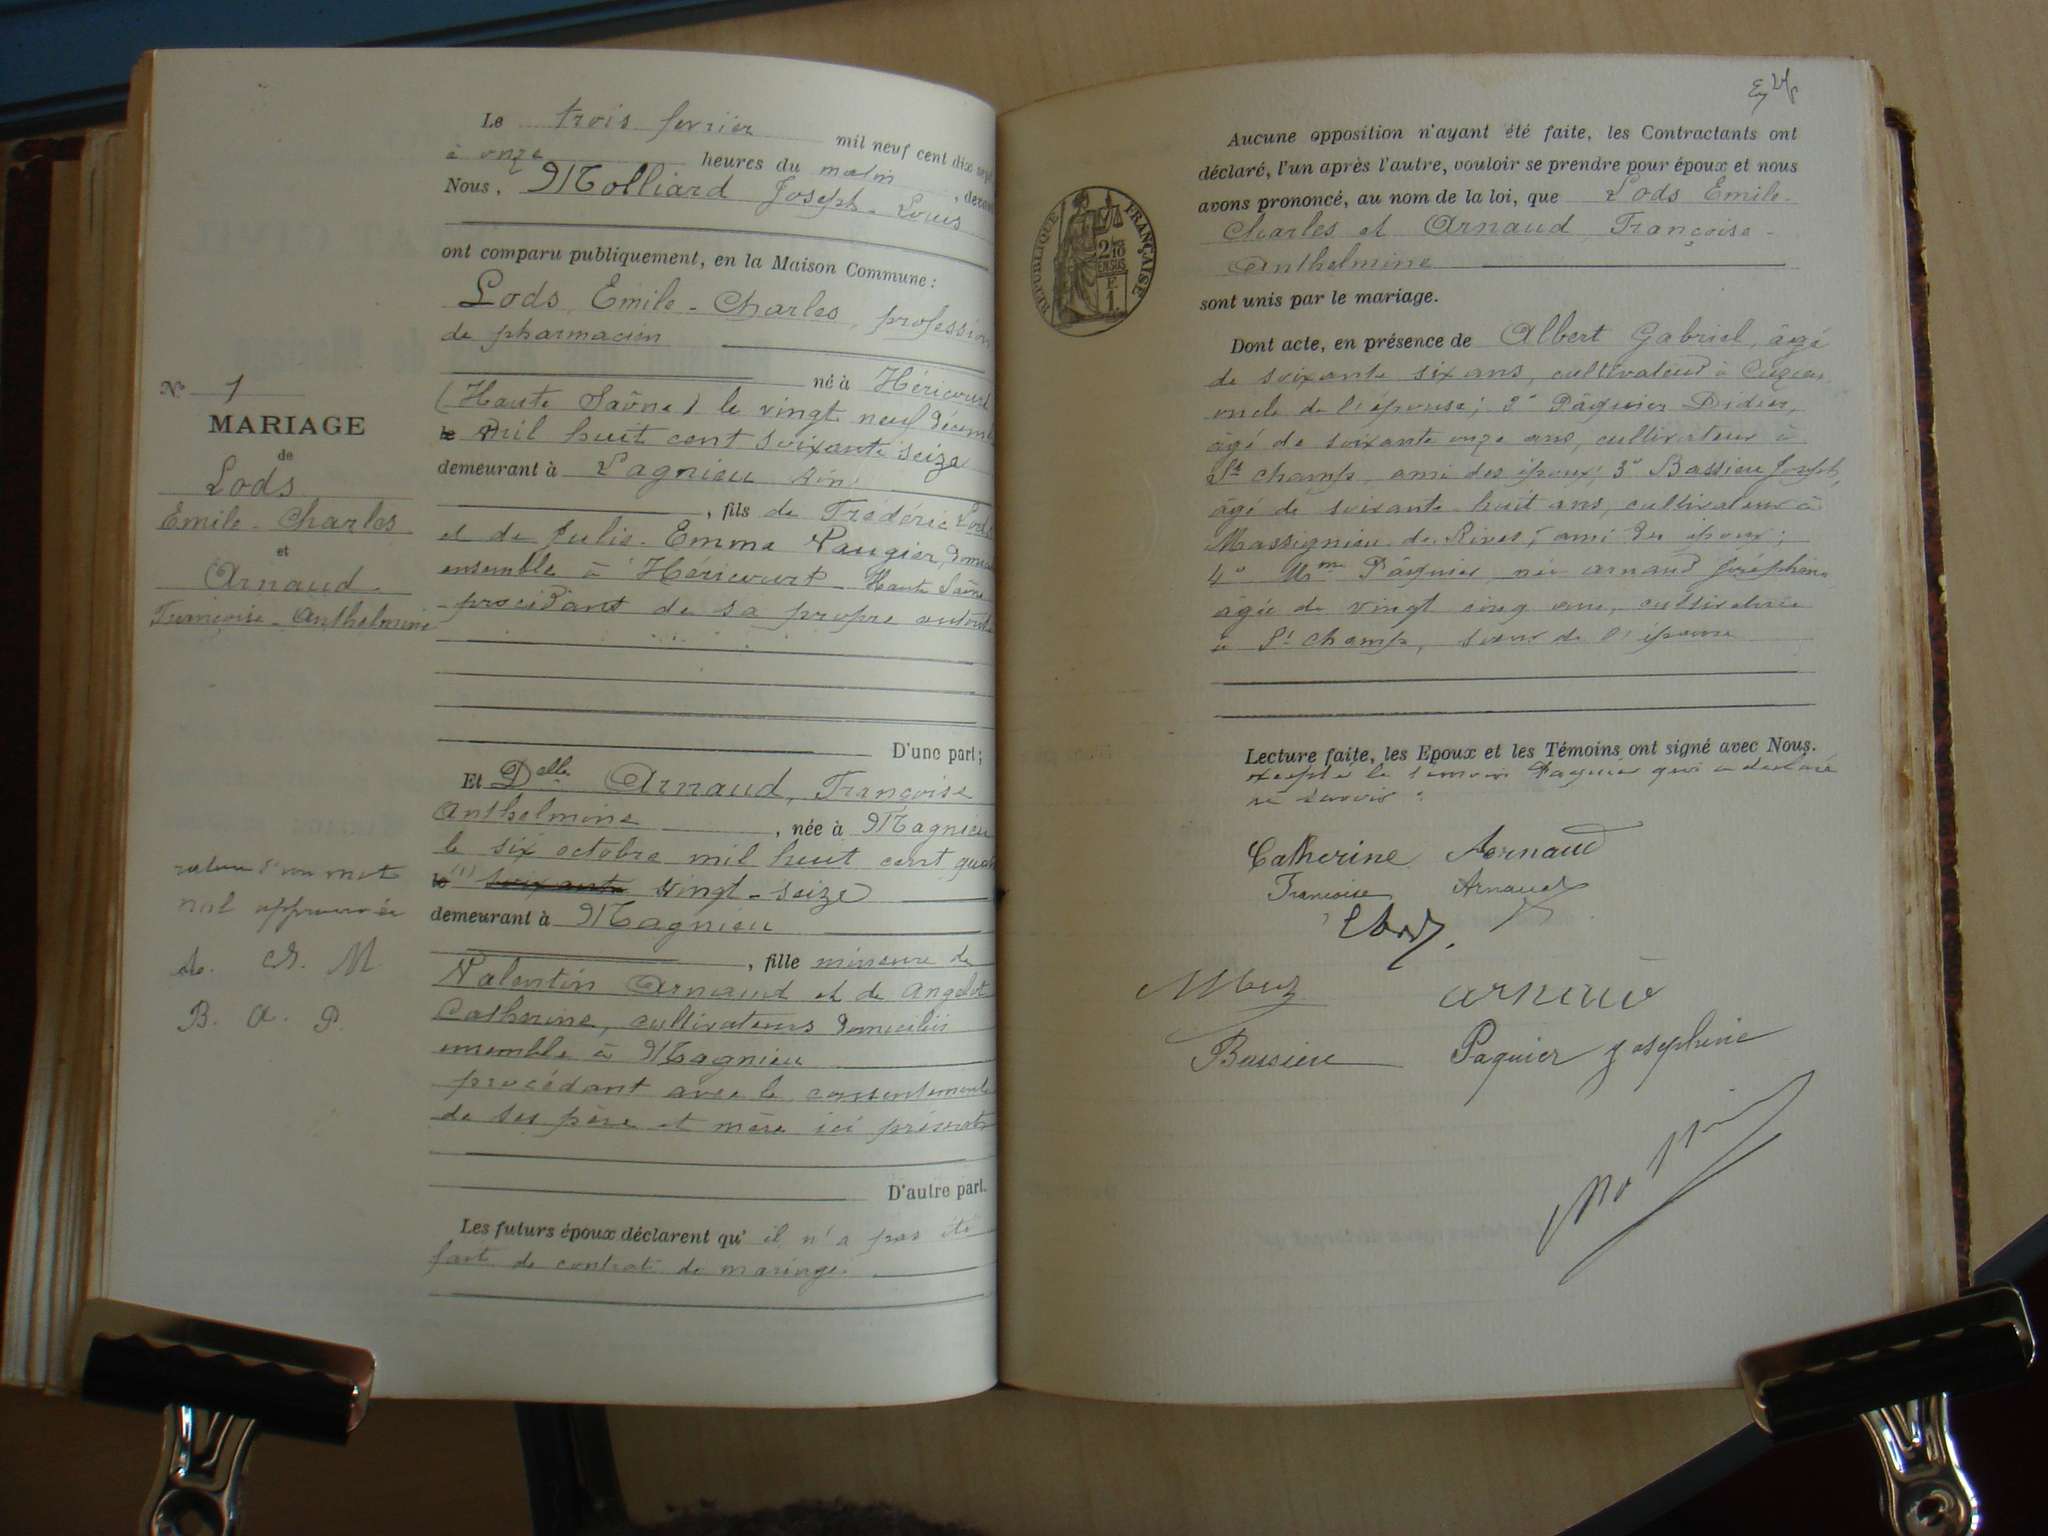 Le trois fevrier mil neuf cent dix sept
à onze heures du matin, devant
Nous, Molliard Joseph-Louis
ont comparu publiquement, en la Maison Commune :
Lods, Emile-Charles, profession
de pharmacien
né à Héricourt
(Haute Saône) le vingt neuf décem
mil huit cent soixante seize
demeurant à Lagnieu Ain
, fils de Frédéric Lods
et de Julie-Emma Laugier, domici
ensemble à Héricourt Haute Saône
procédant de sa propre autorité
D'une part ;
N° 1
MARIAGE
de
Lods
Emile-Charles
et
Arnaud
Françoise-Anthelmine
Et Delle Arnaud, Françoise
Anthelmine, née à Magnieu
le six octobre mil huit cent quat
(1) soixante vingt-seize
demeurant à Magnieu
, fille mineure de
Valentin Arnaud et de Angelot
Catherine, cultivateurs domiciliés
ensemble à Magnieu
procédant avec le consentement
de ses père et mère ici présents
D'autre part.
rature d'un mot
nul approuvée
A. Ch. M.
B. A. P.
Les futurs époux déclarent qu' il n'a pas été
fait de contrat de mariage
Aucune opposition n'ayant été faite, les Contractants ont
déclaré, l'un après l'autre, vouloir se prendre pour époux et nous
avons prononcé, au nom de la loi, que Lods Emile-
Charles et Arnaud Françoise-
Anthelmine
sont unis par le mariage.
RÉPUBLIQUE FRANÇAISE
2/10
EN SUS
Dont acte, en présence de Albert Gabriel, âgé
de soixante six ans, cultivateur à
oncle de l'épouse ; 2° Pâquier Didier,
âgé de soixante onze ans, cultivateur à
St Champ, ami des époux ; 3° Bassieu Joseph,
âgé de soixante-huit ans, cultivateur à
Massignieu de Rives, ami des époux ;
4° Mme Pâquier née Arnaud Joséphine
âgée de vingt cinq ans, cultivatrice
à St Champ, soeur de l'épouse
Lecture faite, les Epoux et les Témoins ont signé avec Nous.
excepté le témoin Paquier qui a déclaré
ne savoir.
Catherine Arnaud
Françoise Arnaud
arnaud
Bassieu Paquier Josephine